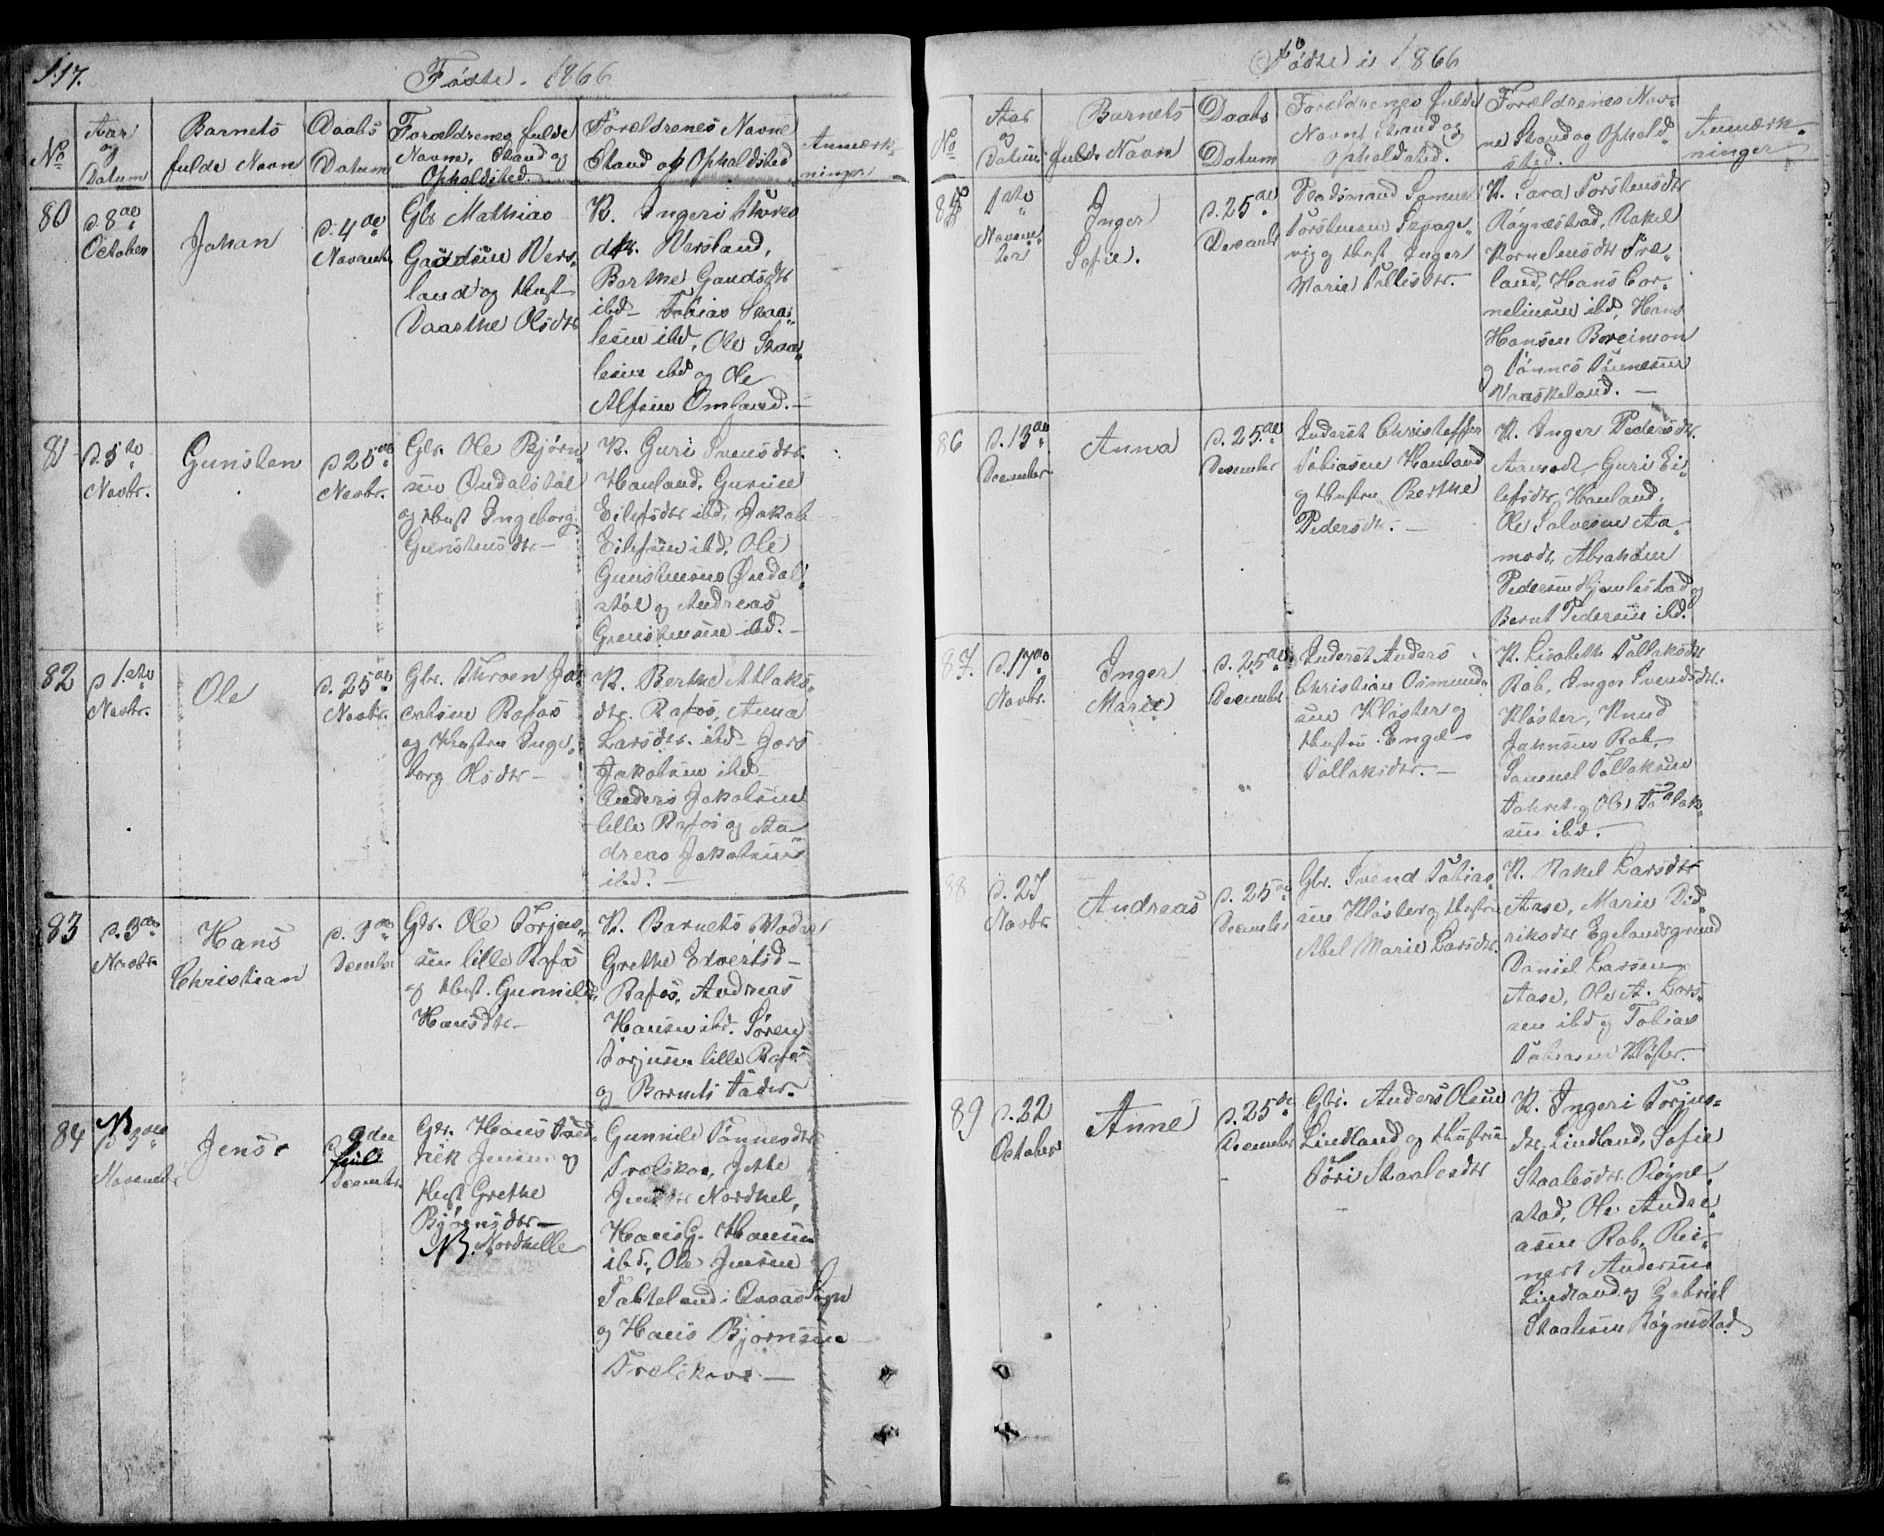 117.
Fødte. 1866
No
Aar
og
Datum
Barnets
fulde Navn
Daabs
Datum
Forældrenes fulde
Navne, Stand og
Opholdsted.
Forældrenes Navne
Stand og Opholdsted
Anmærk-
ninger
80
d. 8de
October
Johan
d. 4de
Novemb.
Gbr Mathias
Gaudsen Vers-
land og Hust
Daarthe Olsdtr
K. Ingeri
dtr. Versland,
Berthe Gaudsdtr
ibd- Tobias Staa-
lesen ibd, Ole Staa-
lesen ibd og Ole
Alfsen Omland.-
81
d. 5te
Novbr.
Gunsten
d 25de
Novbr.
Gbr. Ole Bjørn-
sen Øndalstøl
og Hust Ingeborg
Gunstensdtr-
K. Guri Svensdtr.
Hanland, Gurine
Eilefsdtr ibd, Jakob
Eilefsen ibd, Ole
Gunstensens Øndal-
støl og Andreas
Gunstensen ibd.-
82
d 1ste
Novbr.
Ole
d. 25de
Novbr.
Gbr. Throen Ja-
cobsen Rafos
og Hustru Inge-
borg Olsdtr-
K. Berthe Atlaks-
dtr. Rafos, Anna
Larsdtr. ibd- Jørs
Jakobsen ibd-
Anders Jakobsen
lille Rafos og An-
dreas Jakobsen
ibd.-
83
d. 3de
Novbr.
Hans
Christian
d. 9de
Decembr
Gbr. Ole Torjus-
sen lille Rafos
og Hust. Gunnild
Hansdtr-
K. Barnets Moder
Grethe Edvertsd-
Rafos, Andreas
Hansen ibd. Søren
Torjusen lille Rafos
og Barnets Fader.
84
NB
d 3die
November
Jens
d. 9den
Decembr.
Gbr. Hans Fred-
rik Jensen og
Hust Grethe
Bjørnsdtr-
NB. Nordhelle
Gunnild Tønnesdtr
Trælskaar, Jette
Jensdtr Nordhel,
Hans G. Hansen
ibd, Ole Jensen
Tabteland i Qvaas Sogn
og Hans Bjørnsen
Trælskaar -
Fødte i 1866
No
Aar
og
Datum
Barnets
fulde Navn
Daabs
Datum
Forældrenes fulde
Navne Stand og
Opholdsted.
Forældrenes Nav-
ne Stand og Ophold-
sted.
Anmærk-
ninger
85
1ste
Novem-
ber
Inger
Sofie.
d. 25de
Decembr
Baadsmand Samuel
Torstensen Skoage-
vig og Hust Inger
Marie Tallisdtr.
K. Sara Torstensdtr
Røynestad, Rakel
Kornelensdtr Træ-
land, Hans Cor-
neliusen ibd, Hans
Hansen Boreimon
og Tønnes Tønnesen
Vanskeland. -
86
d. 13de
December
Anna
d. 25de
December
Inderst Christoffer
Tobiasen Hanland
og Hustru Berthe
Pedersdtr. -
K. Inger Pedersdtr.
Aamodt, Guri Ei-
lefsdtr, Hanland,
Ole Salvesen Aa-
modt, Abraham
Pedersen Hjemlestad og
Bernt Pedersen ibd.
87
d. 17de
Novbr.
Inger
Marie
d. 25de
December
Inderst Anders
Christian Osmund-
sen Kløster og
Hustru. Engel
Tallaksdtr. -
K. Lisabethe Tallaksdtr
Rob, Inger Svendsdtr.
Kløster, Knud
Johnsen Rob,
Samuel Tollaksen
og Ole Tollak-
sen ibd.
88
d. 27
Novbr.
Andreas
d. 25de
December
Gbr. Svend Tobias-
sen Kløster og Hustru
Abel Marie Larsdtr.
K. Rakel Larsdtr
Aase, Marie Did-
riksdtr Egelandsgrund
Daniel Larsen
Aase, Ole A. Lars-
sen ibd og Tobias
Tobiasen Kløster.
89
d. 22
October
Anne
d. 25de
December
Gbr. Anders Olsen
Lindland og Hustru
Tøri Staalesdtr
K. Ingeri Torjus-
dtr, Lindland, Sofie
Staalesdtr. Røyne-
stad, Ole Andre-
asen Rob, Rei-
nert Andersen
Lindland og Gabriel
Staalesen Røynestad